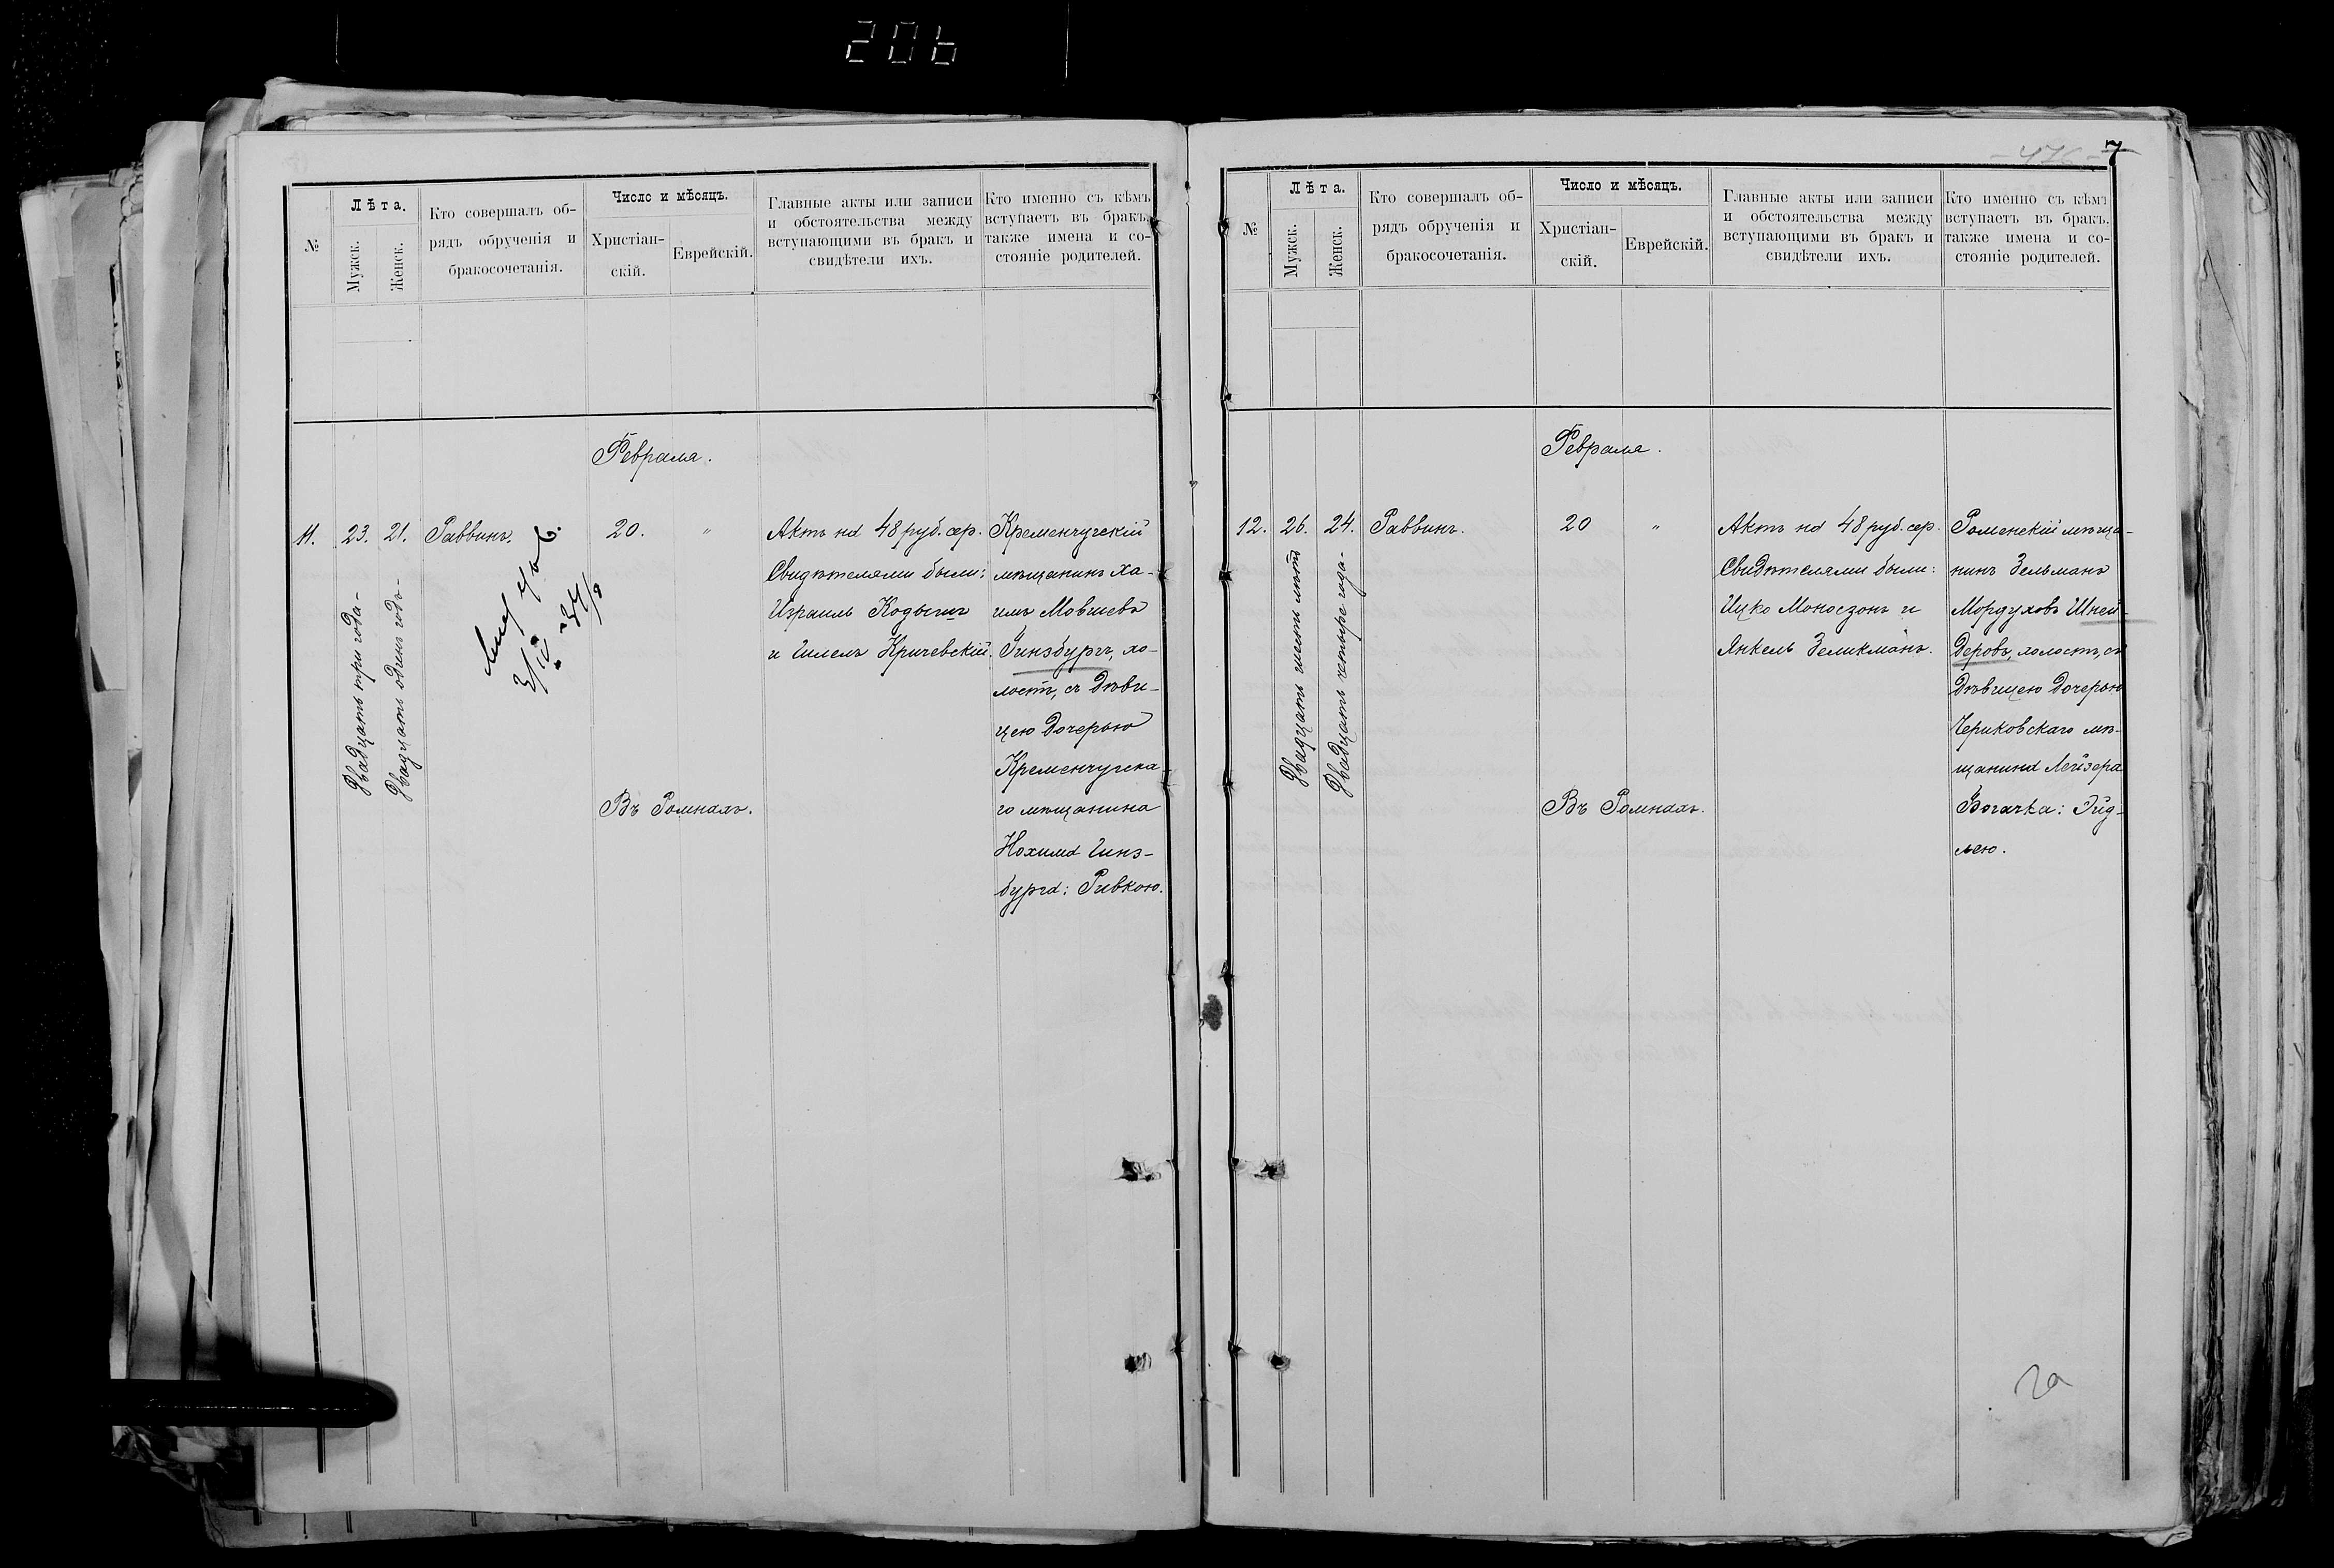 206
№
Лѣта.
Мужск.
Женск.
Кто совершалъ об-
рядъ обрученія и
бракосочетанія.
Число и мѣсяцъ.
Христіан-
скій.
Еврейскій.
Главные акты или записи
и обстоятельства между
вступающими въ бракъ и
свидѣтели ихъ.
Кто именно съ кѣмъ
вступаетъ въ бракъ,
также имена и со-
стояніе родителей.
Февраля.
11.
23.
Двадцать три года-
21.
Двадцать одинъ годъ-
Раввинъ.
20.
"
Въ Ромнахъ.
Актъ на 48 руб. сер.
Свидѣтелями были:
Израиль Кодышъ
и Гилелъ Кричевскій.
Кременчугскій
мѣщанинъ Ха-
имъ Мовшевъ
Гинзбургъ, хо-
лостъ, съ дѣви-
цею дочерью
Кременчугска-
го мѣщанина
Нохима Гинз-
бурга: Ривкою.
7
№
Лѣта.
Мужск.
Женск.
Кто совершалъ об-
рядъ обрученія и
бракосочетанія.
Число и мѣсяцъ.
Христіан-
скій.
Еврейскій.
Главные акты или записи
и обстоятельства между
вступающими въ бракъ и
свидѣтели ихъ.
Кто именно съ кѣмъ
вступаетъ въ бракъ.
также имена и со-
стояніе родителей.
Февраля.
12.
26.
Двадцать шесть лѣтъ
24.
Двадцать четыре года-
Раввинъ.
20
"
Въ Ромнахъ.
Актъ на 48 руб. сер.
Свидѣтелями были:
Ицко Моносзонъ и
Янкель Зеликманъ.
Роменскій мѣща-
нинъ Зельманъ
Мордуховъ Шней-
деровъ, холостъ, съ
дѣвицею дочерью
Чериковскаго мѣ-
щанина Лейзера
Богачка: Эйд-
лею.